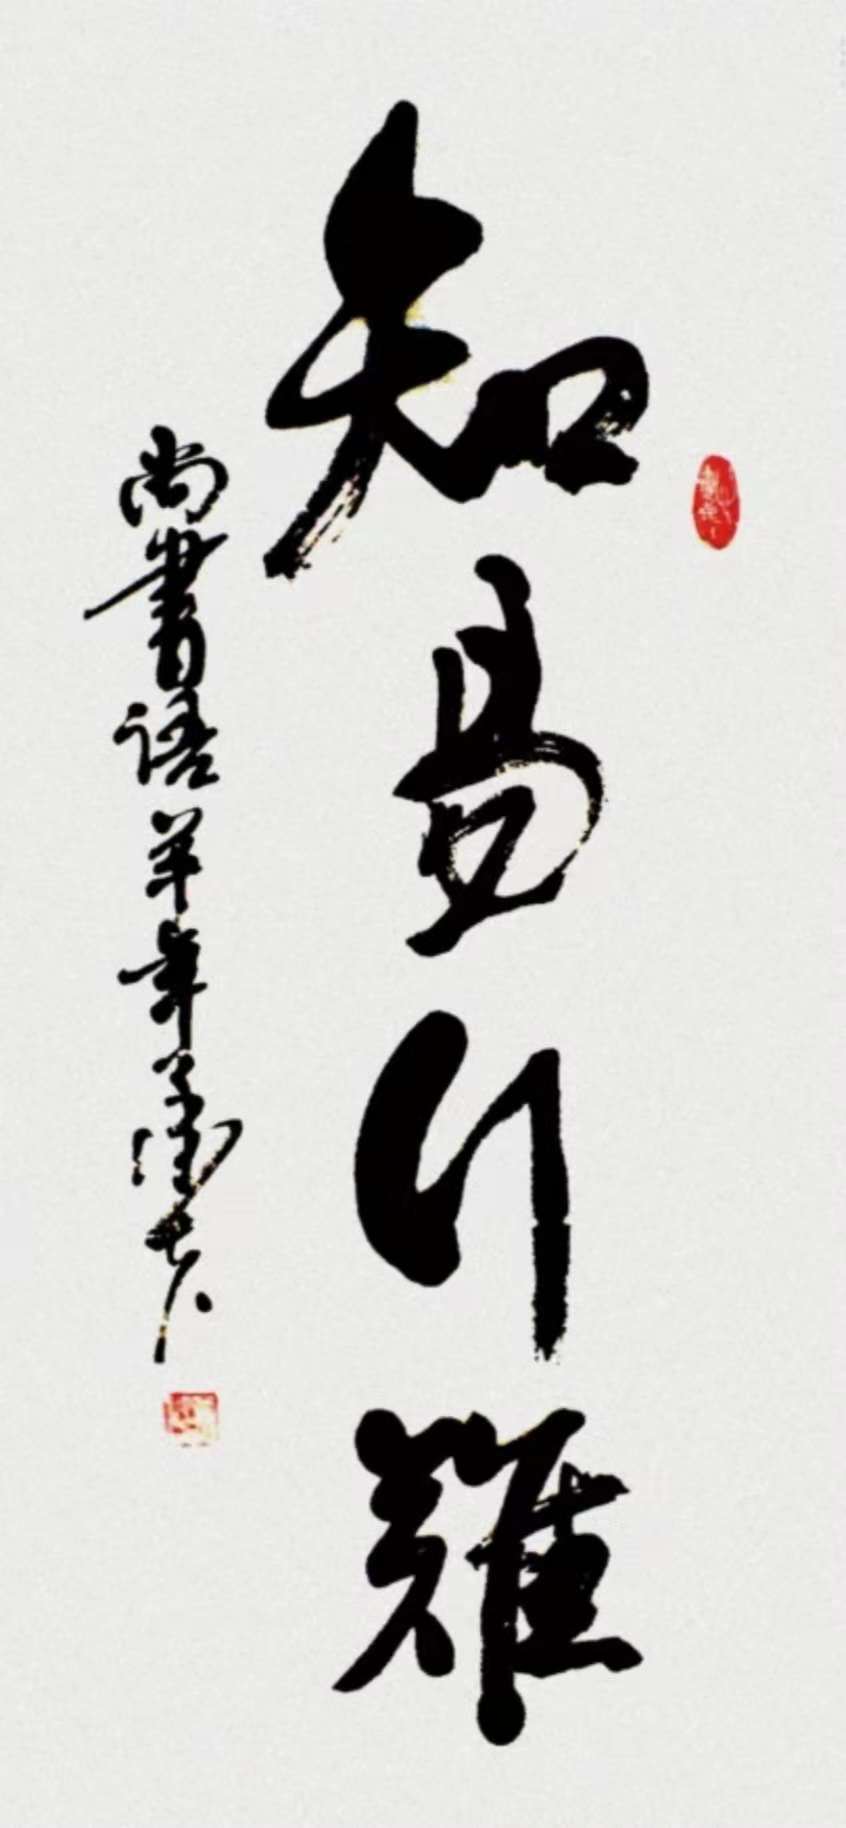 知易行難
尚書語 羊年